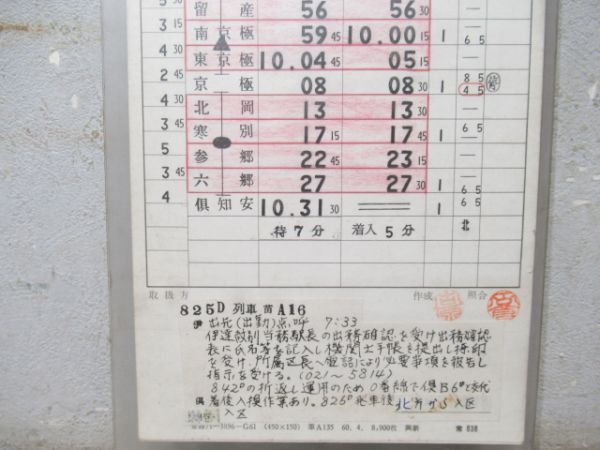 5 30 留産 56 56 30
3 15 南京極 59 45 10.00 15 1 6 5
東京極 10.04 45 05 15
2 45 京極 08 08 30 1 8 5 4 5
4 30 北岡 13 13 30
3 45 寒別 17 15 17 45 1 6 5
5 参郷 22 45 23 15
3 45 六郷 27 27 30 1 6 5
4 倶知安 10.31 30 1 6 5
待7分 着入5分 北
取扱方 作成 照会
825D 列車 苗 A16
出先(出勤)点呼 7:33
伊達紋別当務駅長の出務確認を受け出務確認
表に氏名等を記入し機関士手帳を提出し捺印
を受け、所属区長へ電話により必要事項を報告し
指示を受ける。(021~5814)
842Dの折返し運用のため0番線で倶B6と交代
着後入換作業あり。826D発車後 北方から入区
入区
(450×150) 第A135 60. 4. 8,900枚 興新